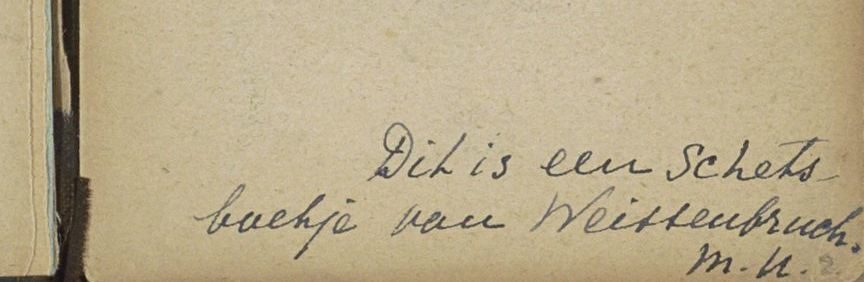 Dit is een Schets-
boekje van Weissenbruch.
M.U.